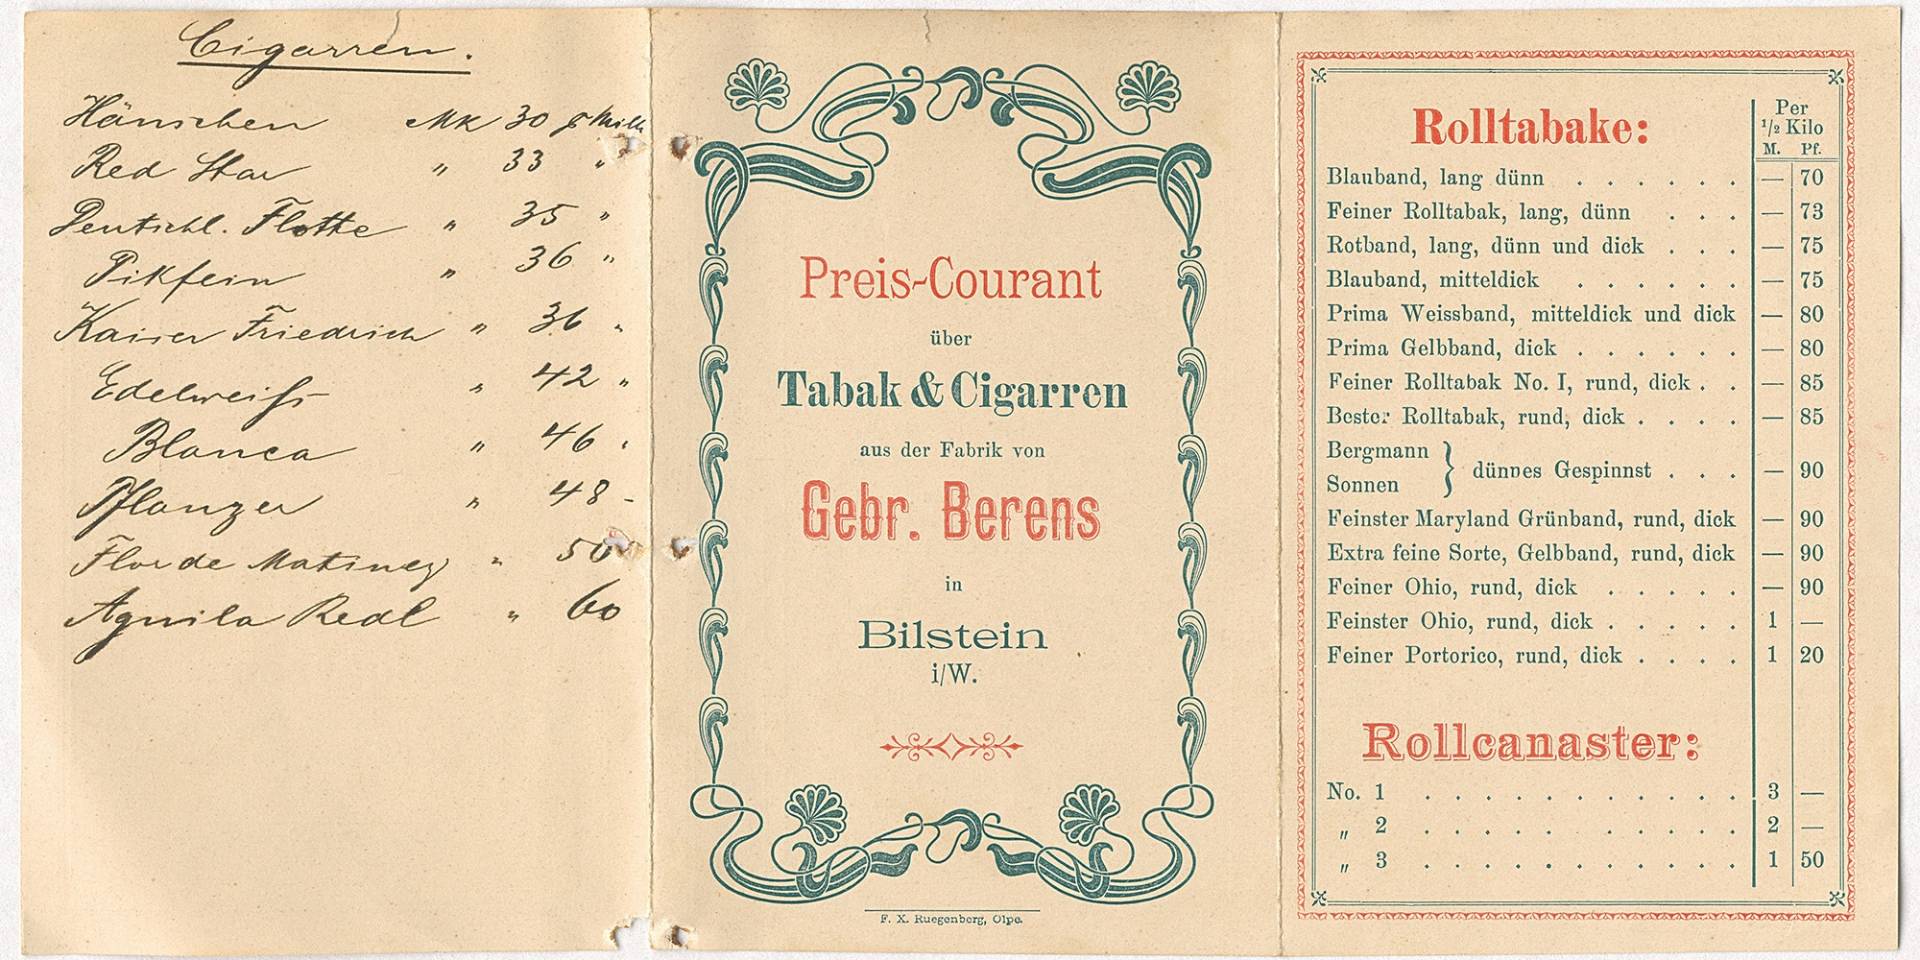 Cigarren.
Hänschen Mk 30 p Mille
Red Star " 33 "
Deutschl. Flotte " 35 "
Pikfein " 36 "
Kaiser Friedrich " 36 "
Edelweiß " 42 "
Blanca " 46 "
Pflanzer " 48 "
Flor de " 50
Aguila Real " 60
Preis-Courant
über
Tabak & Cigarren
aus der Fabrik von
Gebr. Berens
in
Bilstein
i/W.
F. X. Ruegenberg, Olpe.
Rolltabake:
Per
1/2 Kilo
M. Pf.
Blauband, lang dünn . . . . . . — 70
Feiner Rolltabak, lang, dünn . . . — 73
Rotband, lang, dünn und dick . . . — 75
Blauband, mitteldick . . . . . . — 75
Prima Weissband, mitteldick und dick — 80
Prima Gelbband, dick . . . . . . — 80
Feiner Rolltabak No. I, rund, dick . . — 85
Bester Rolltabak, rund, dick . . . . — 85
Bergmann
Sonnen } dünnes Gespinnst . . . — 90
Feinster Maryland Grünband, rund, dick — 90
Extra feine Sorte, Gelbband, rund, dick — 90
Feiner Ohio, rund, dick . . . . . — 90
Feinster Ohio, rund, dick . . . . . 1 —
Feiner Portorico, rund, dick . . . . 1 20
Rollcanaster:
No. 1 . . . . . . . . . . . 3 —
„ 2 . . . . . . . . . . 2 —
„ 3 . . . . . . . . . . . 1 50